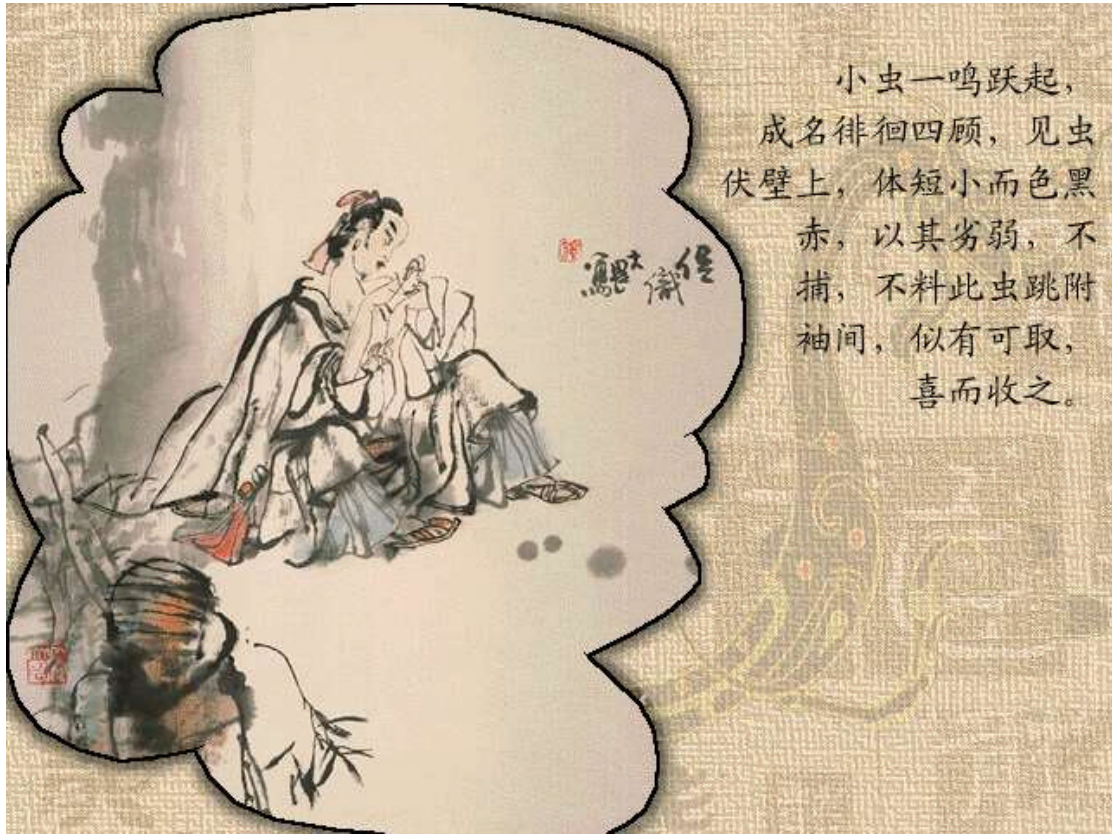 小虫一鸣跃起，
成名徘徊四顾，见虫
伏壁上，体短小而色黑
赤，以其劣弱，不
捕，不料此虫跳附
袖间，似有可取，
喜而收之。